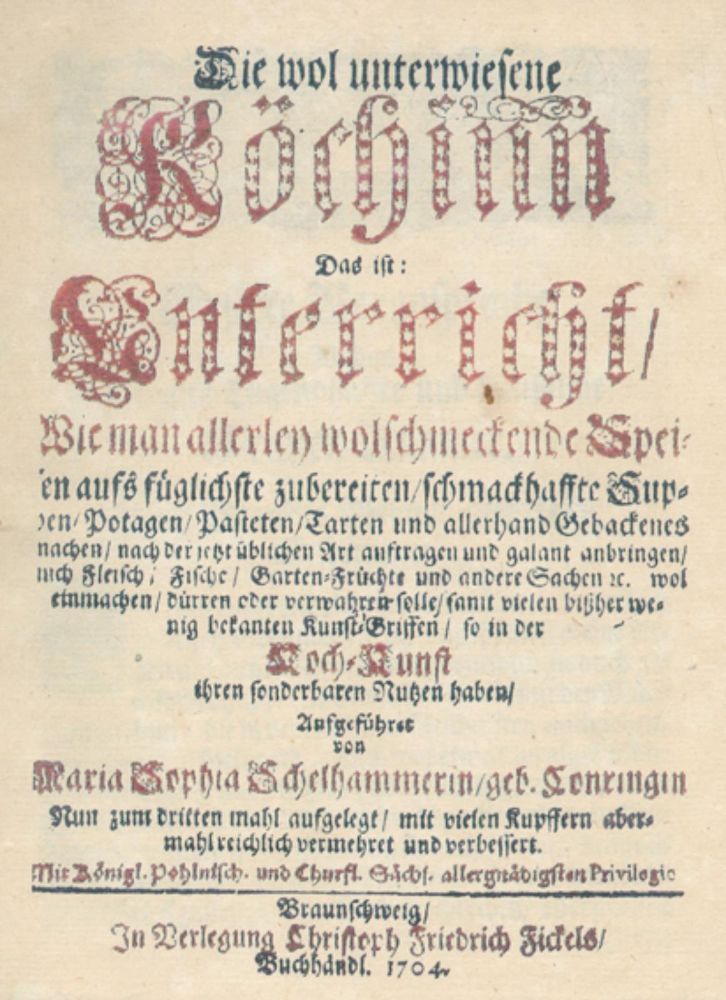 Die wol unterwiesene
Köchinn
Das ist:
Unterricht/
Wie man allerley wolschmeckende Spei-
en aufs füglichste zubereiten/schmackhaffte Sup-
pen/Potagen/Pasteten/Tarten und allerhand Gebackenes
machen/nach der jetzt üblichen Art auftragen und galant anbringen/
uch Fleisch/Fische/Garten-Früchte und andere Sachen ꝛc. wol
einmachen/dürren oder verwahren solle/samt vielen bißher we-
nig bekanten Kunst-Griffen/so in der
Koch-Kunst
ihren sonderbaren Nutzen haben/
Aufgeführet
von
Maria Sophia Schelhammerin/geb. Conringin
Nun zum dritten mahl aufgelegt/mit vielen Kupffern aber-
mahl reichlich vermehret und verbessert.
Mit Königl. Pohlnisch. und Churfl. Sächs. allergnädigsten Privilegio
Braunschweig/
In Verlegung Christoph Friedrich Fickels/
Buchhändl. 1704.